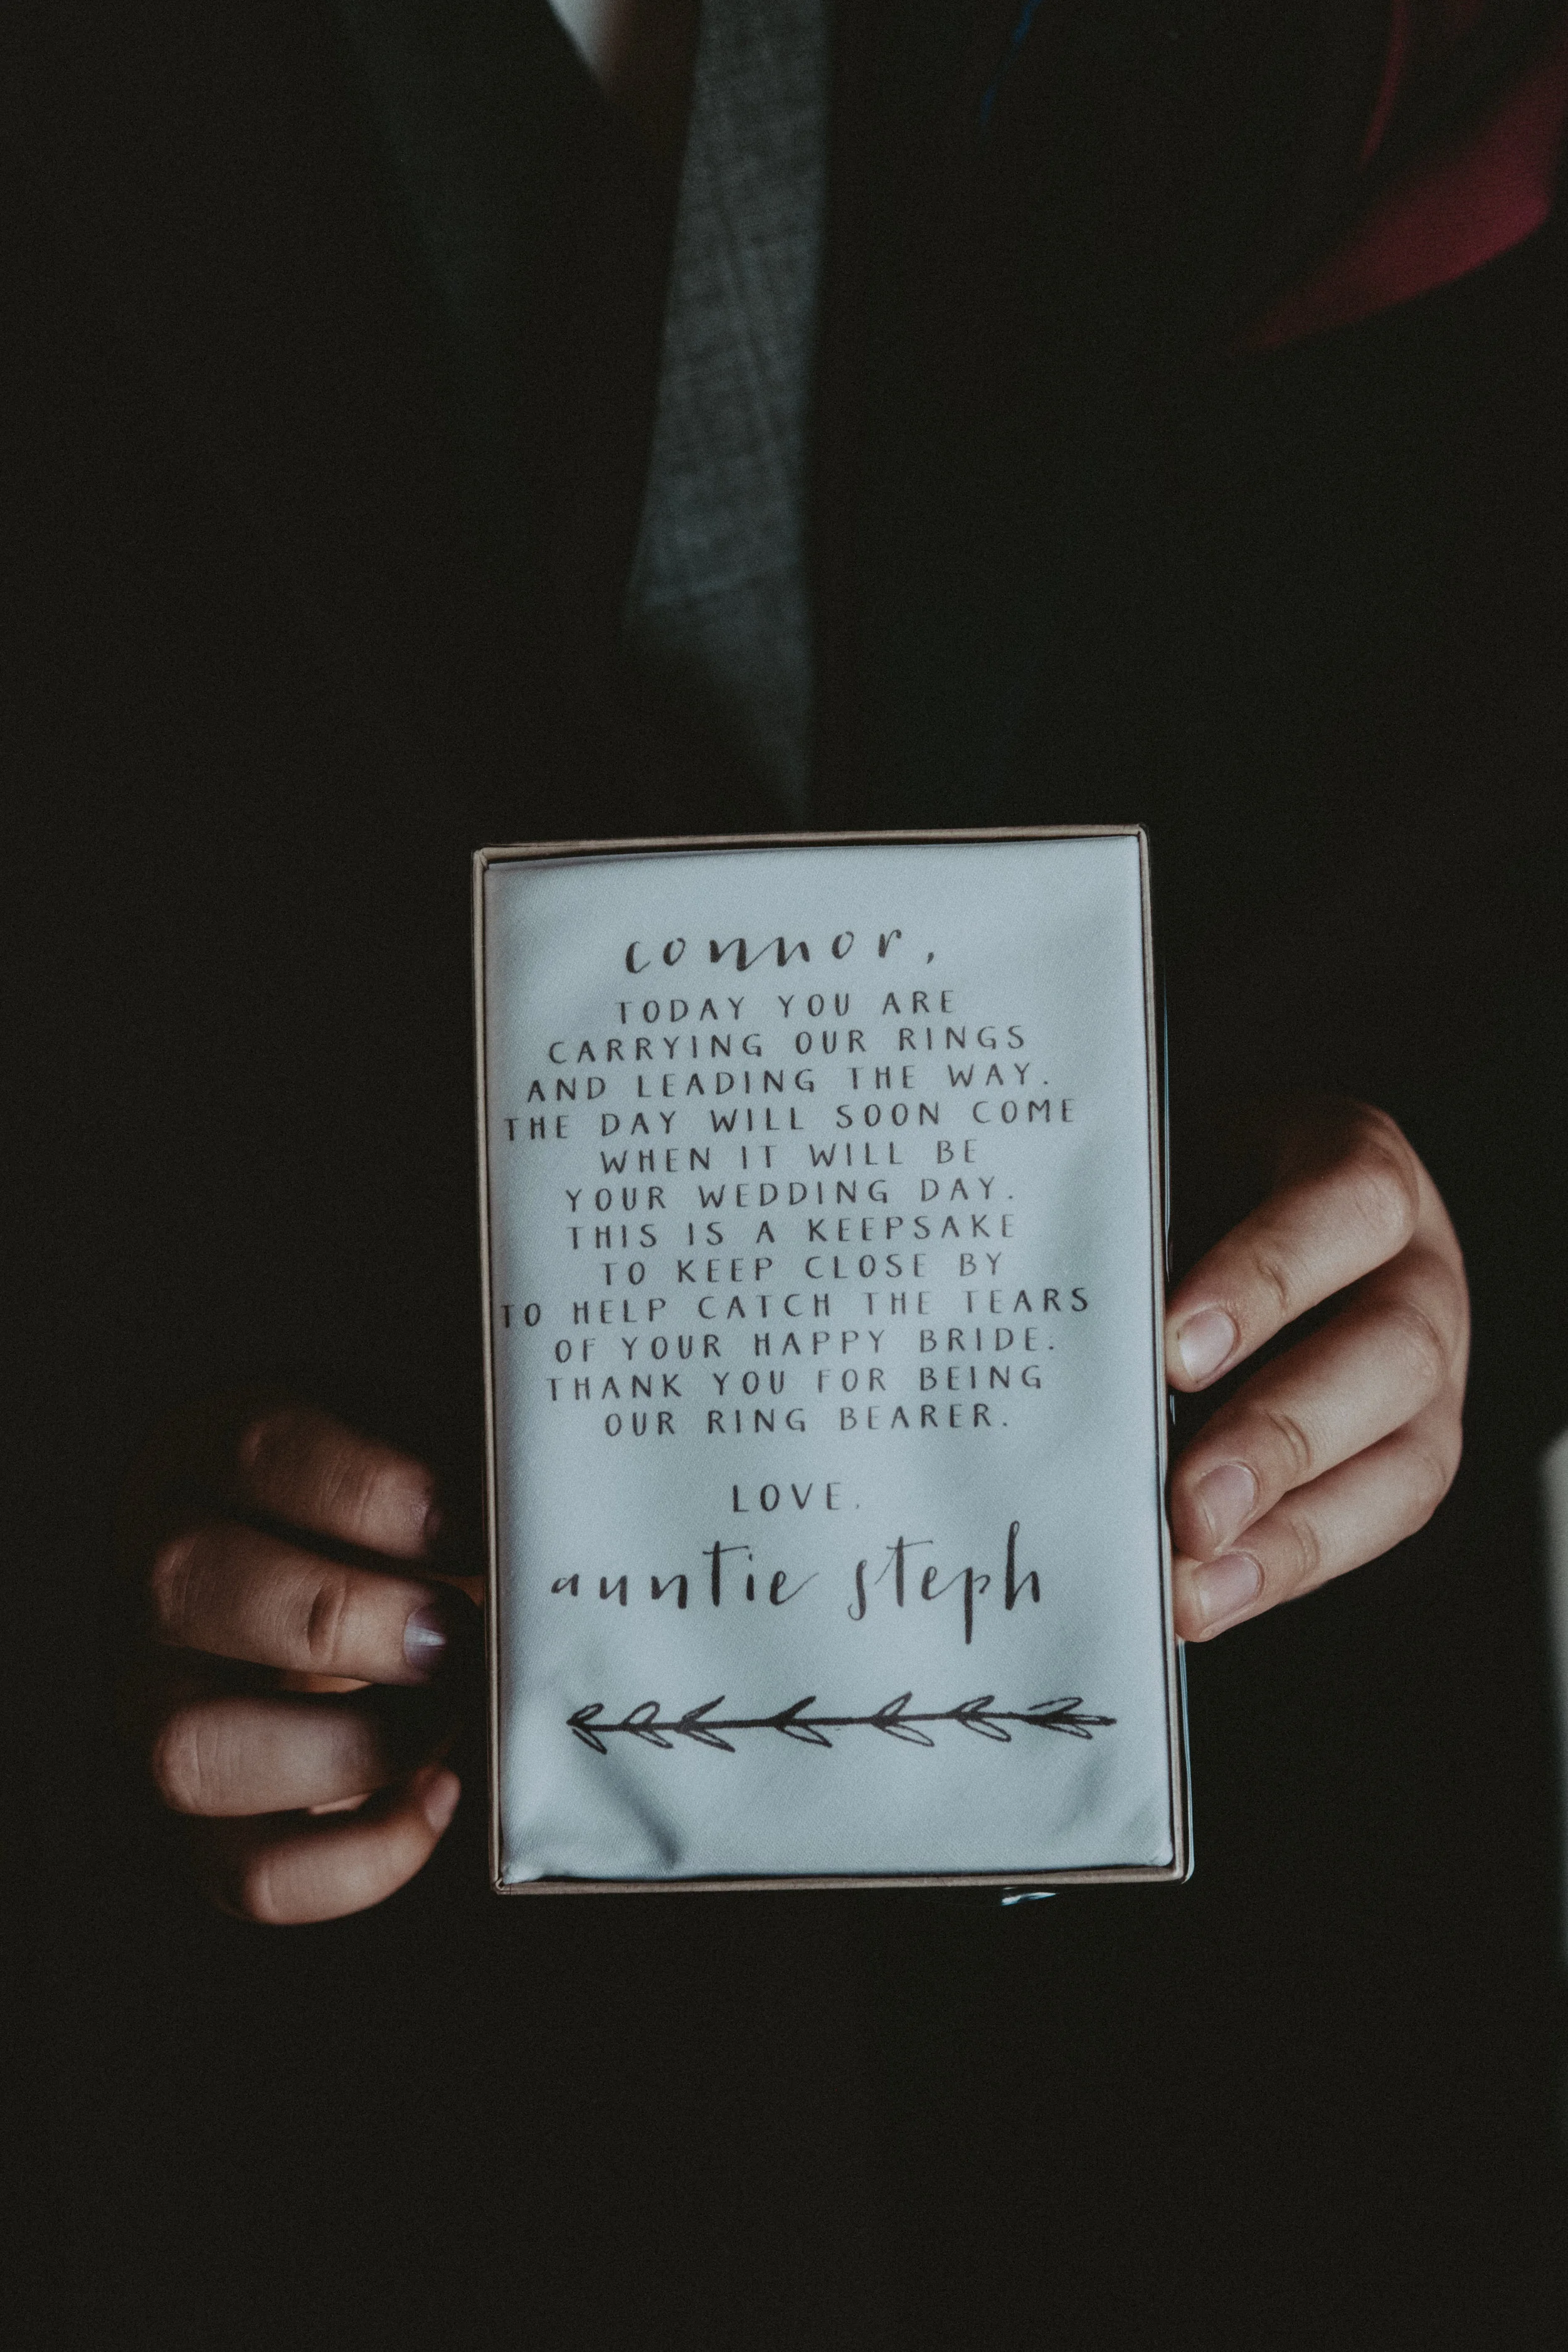 connor,
TODAY YOU ARE
CARRYING OUR RINGS
AND LEADING THE WAY.
THE DAY WILL SOON COME
WHEN IT WILL BE
YOUR WEDDING DAY.
THIS IS A KEEPSAKE
TO KEEP CLOSE BY
TO HELP CATCH THE TEARS
OF YOUR HAPPY BRIDE.
THANK YOU FOR BEING
OUR RING BEARER.
LOVE,
auntie steph